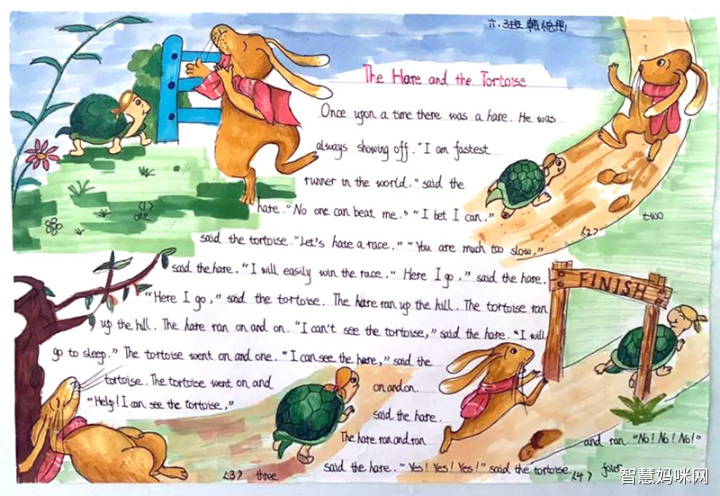 六.3班
The Hare and the Tortoise
Once upon a time there was a hare. He was
always showing off. "I am fastest
runner in the world." said the
hare. "No one can beat me." "I bet I can."
said the tortoise. "Let's have a race." "You are much too slow,"
said the hare. "I will easily win the race." Here I go," said the hare.
"Here I go," said the tortoise. The hare ran up the hill. The tortoise ran
up the hill. The hare ran on and on. "I can't see the tortoise," said the hare. "I will
go to sleep." The tortoise went on and one. "I can see the hare," said the
tortoise. The tortoise went on and on and on.
"Help! I can see the tortoise," said the hare.
The hare ran and ran and ran. "No! No! No!"
said the hare. "Yes! Yes! Yes!" said the tortoise
<1> one
<2> two
<3> three
<4> four
FINISH
智慧妈咪网